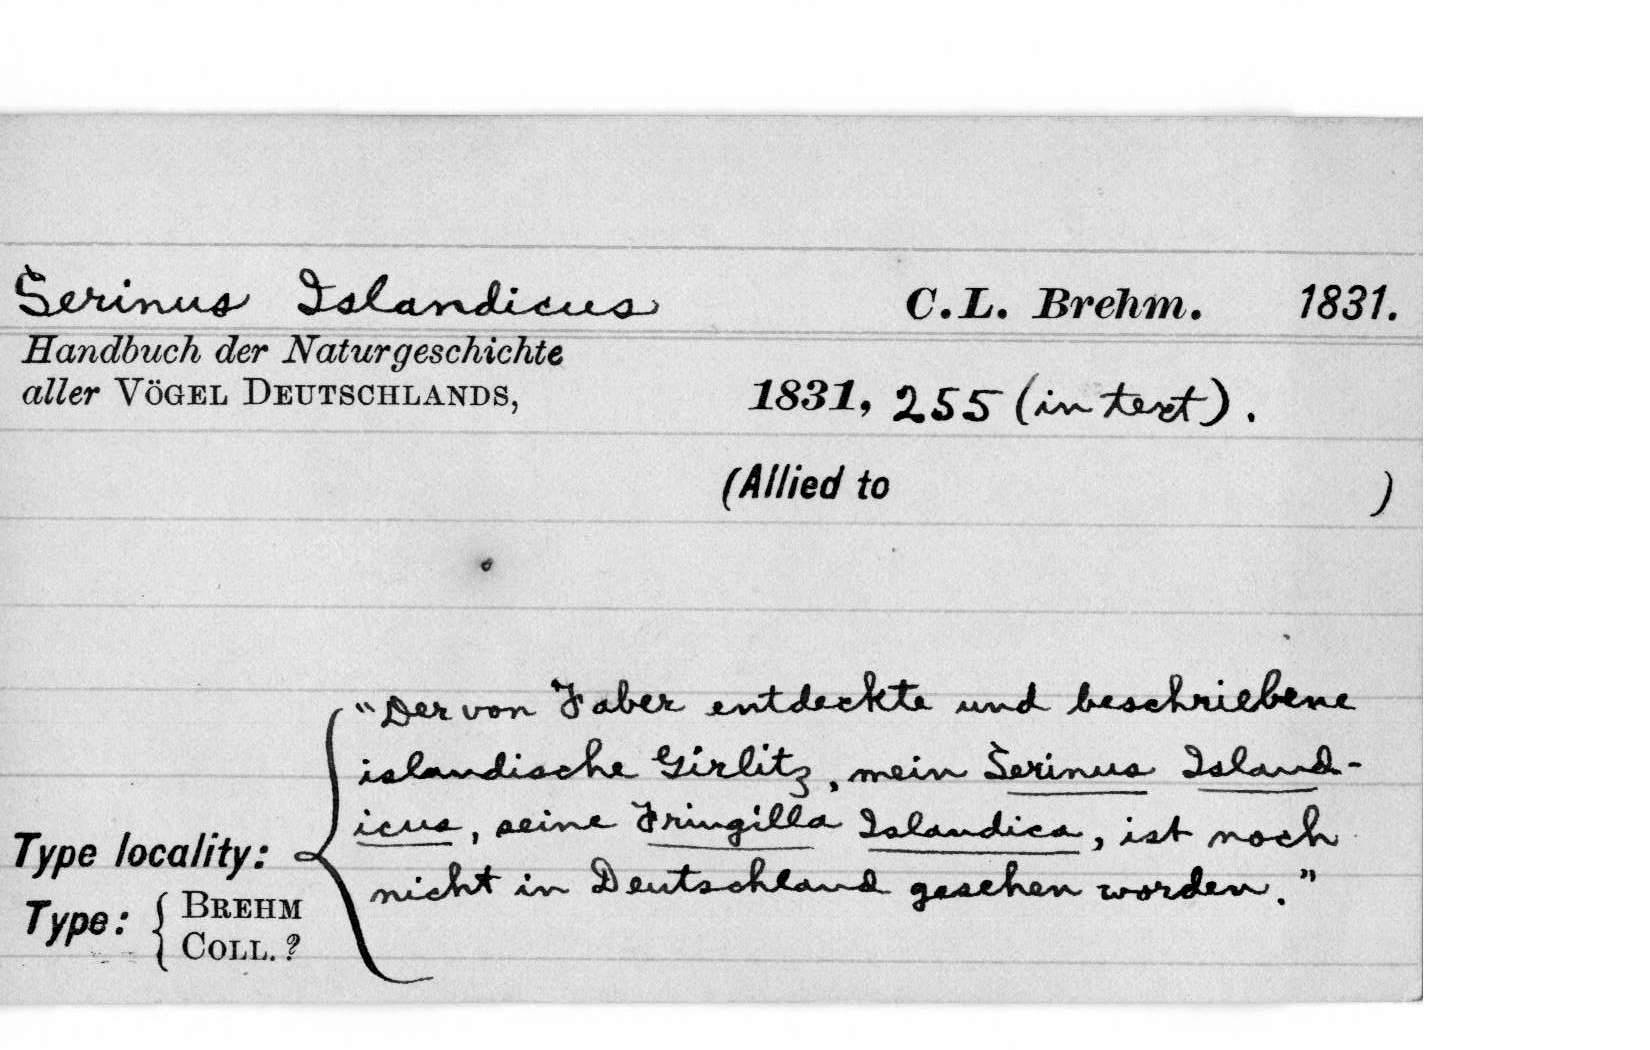 Serinus Islandicus C.L. Brehm. 1831.
Handbuch der Naturgeschichte
aller VÖGEL DEUTSCHLANDS, 1831, 255 (in text).
(Allied to )
"Der von Faber entdeckte und beschriebene
islandische Girlitz, mein Serinus Island-
icus, seine Fringilla Islandica, ist noch
nicht in Deutschland gesehen worden."
Type locality:
Type: { BREHM
COLL. ?